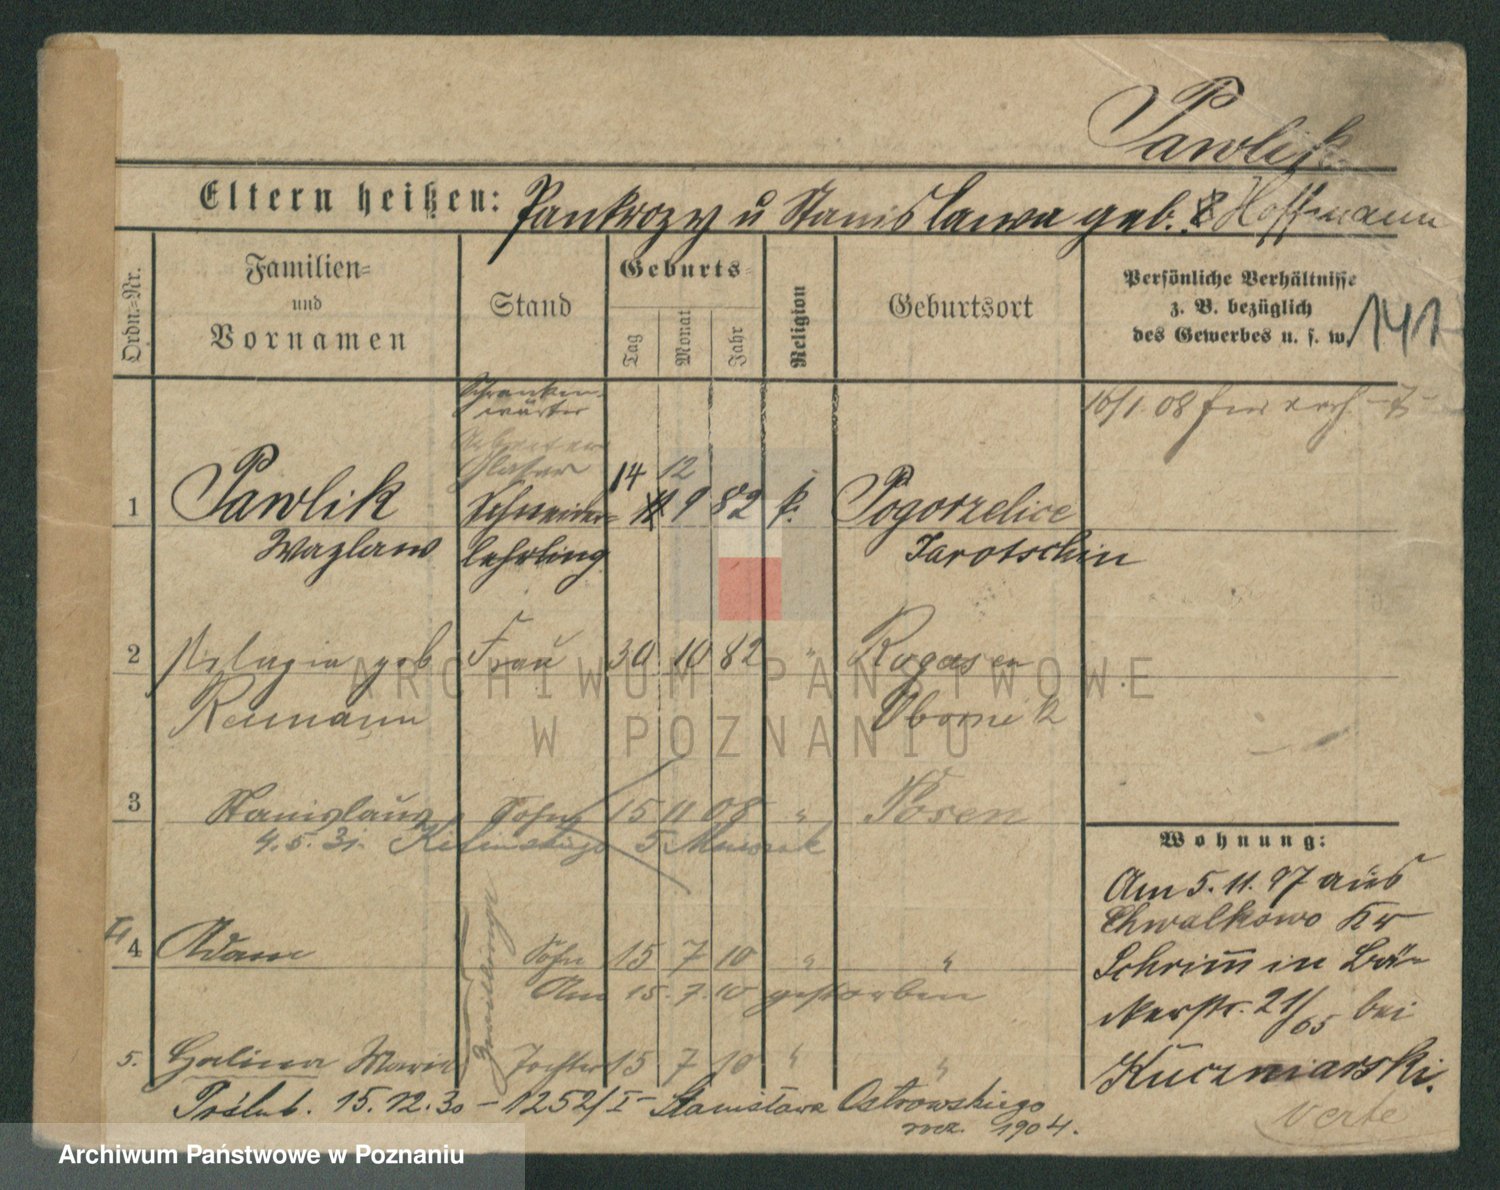 Pawlik
Eltern heißen: Pankrozy u Stanislawa geb. Hoffmann
Ordn.-Nr.
Familien-
und
Vornamen
Stand
Geburts-
Tag
Monat
Jahr
Religion
Geburtsort
Persönliche Verhältnisse
z. B. bezüglich
des Gewerbes u. s. w.
141
Schranken-
wärter
16/1. 08
14 12
1 Pawlik Schneider- 9 82 k. Pogorzelice
Wazlaw lehrling Jarotschin
2 Pelagia geb Frau 30 10 82 " Rogasen
Reimann Obornik
3 Stanislaus Sohn 15 11 08 " Posen
4.5.31.
4 Adam Sohn 15 7 10 " "
Am 15.7.10 gestorben
Zwillinge
5. Halina Maria Tochter 15 7 10 " "
Poślub. 15.12.30 – 1252/I – Stanisława Ostrowskiego
1904.
Wohnung:
Am 5.11.97 aus
Chwalkowo Kr
Schrimm in Bä-
ckerstr. 21/65 bei
Kuczniarski.
verte
ARCHIWUM PAŃSTWOWE
W POZNANIU
Archiwum Państwowe w Poznaniu